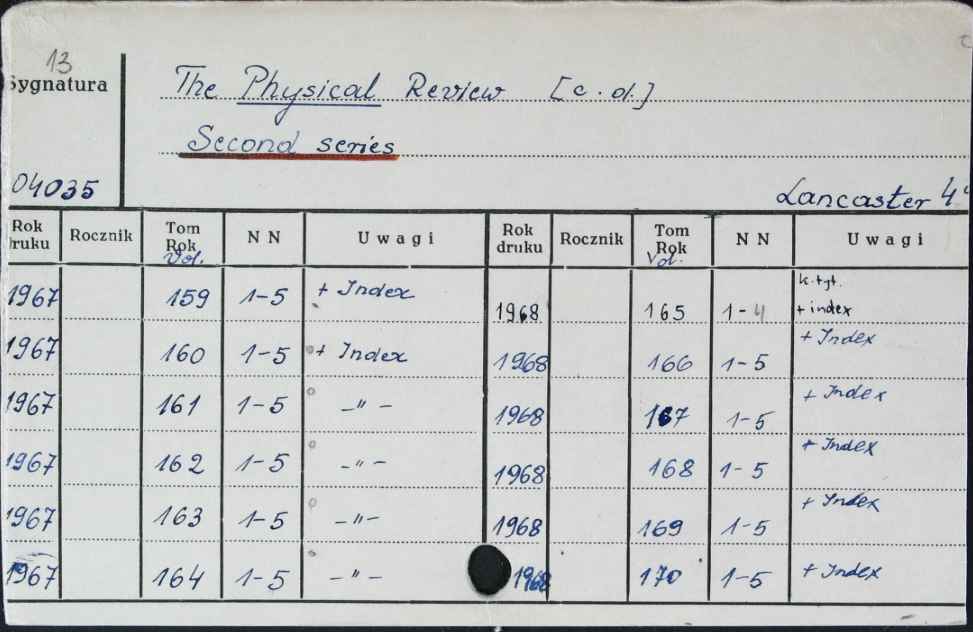 13
Sygnatura
The Physical Review [c.d.]
Second series
04035
Lancaster 4°
Rok druku Rocznik Tom Rok Vol. N N Uwagi Rok druku Rocznik Tom Rok Vol. N N Uwagi
1967 159 1-5 + Index 1968 165 1-4 k. tyt. + index
1967 160 1-5 + Index 1968 166 1-5 + Index
1967 161 1-5 -"- 1968 167 1-5 + Index
1967 162 1-5 -"- 1968 168 1-5 + Index
1967 163 1-5 -"- 1968 169 1-5 + Index
1967 164 1-5 -"- 1968 170 1-5 + Index